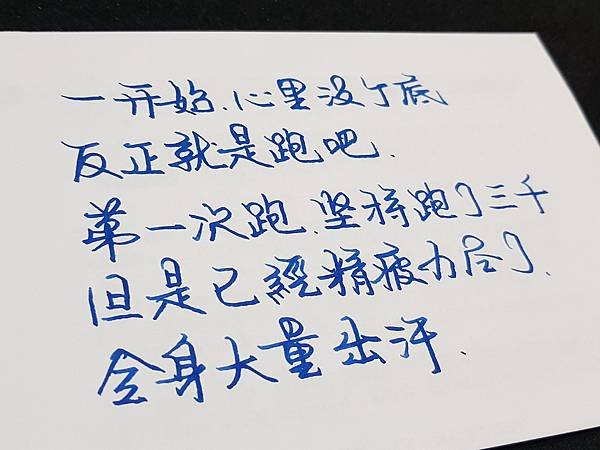 一开始.心里没了底
反正就是跑吧.
第一次跑.坚持跑了三千
但是已經精疲力尽了.
全身大量出汗.